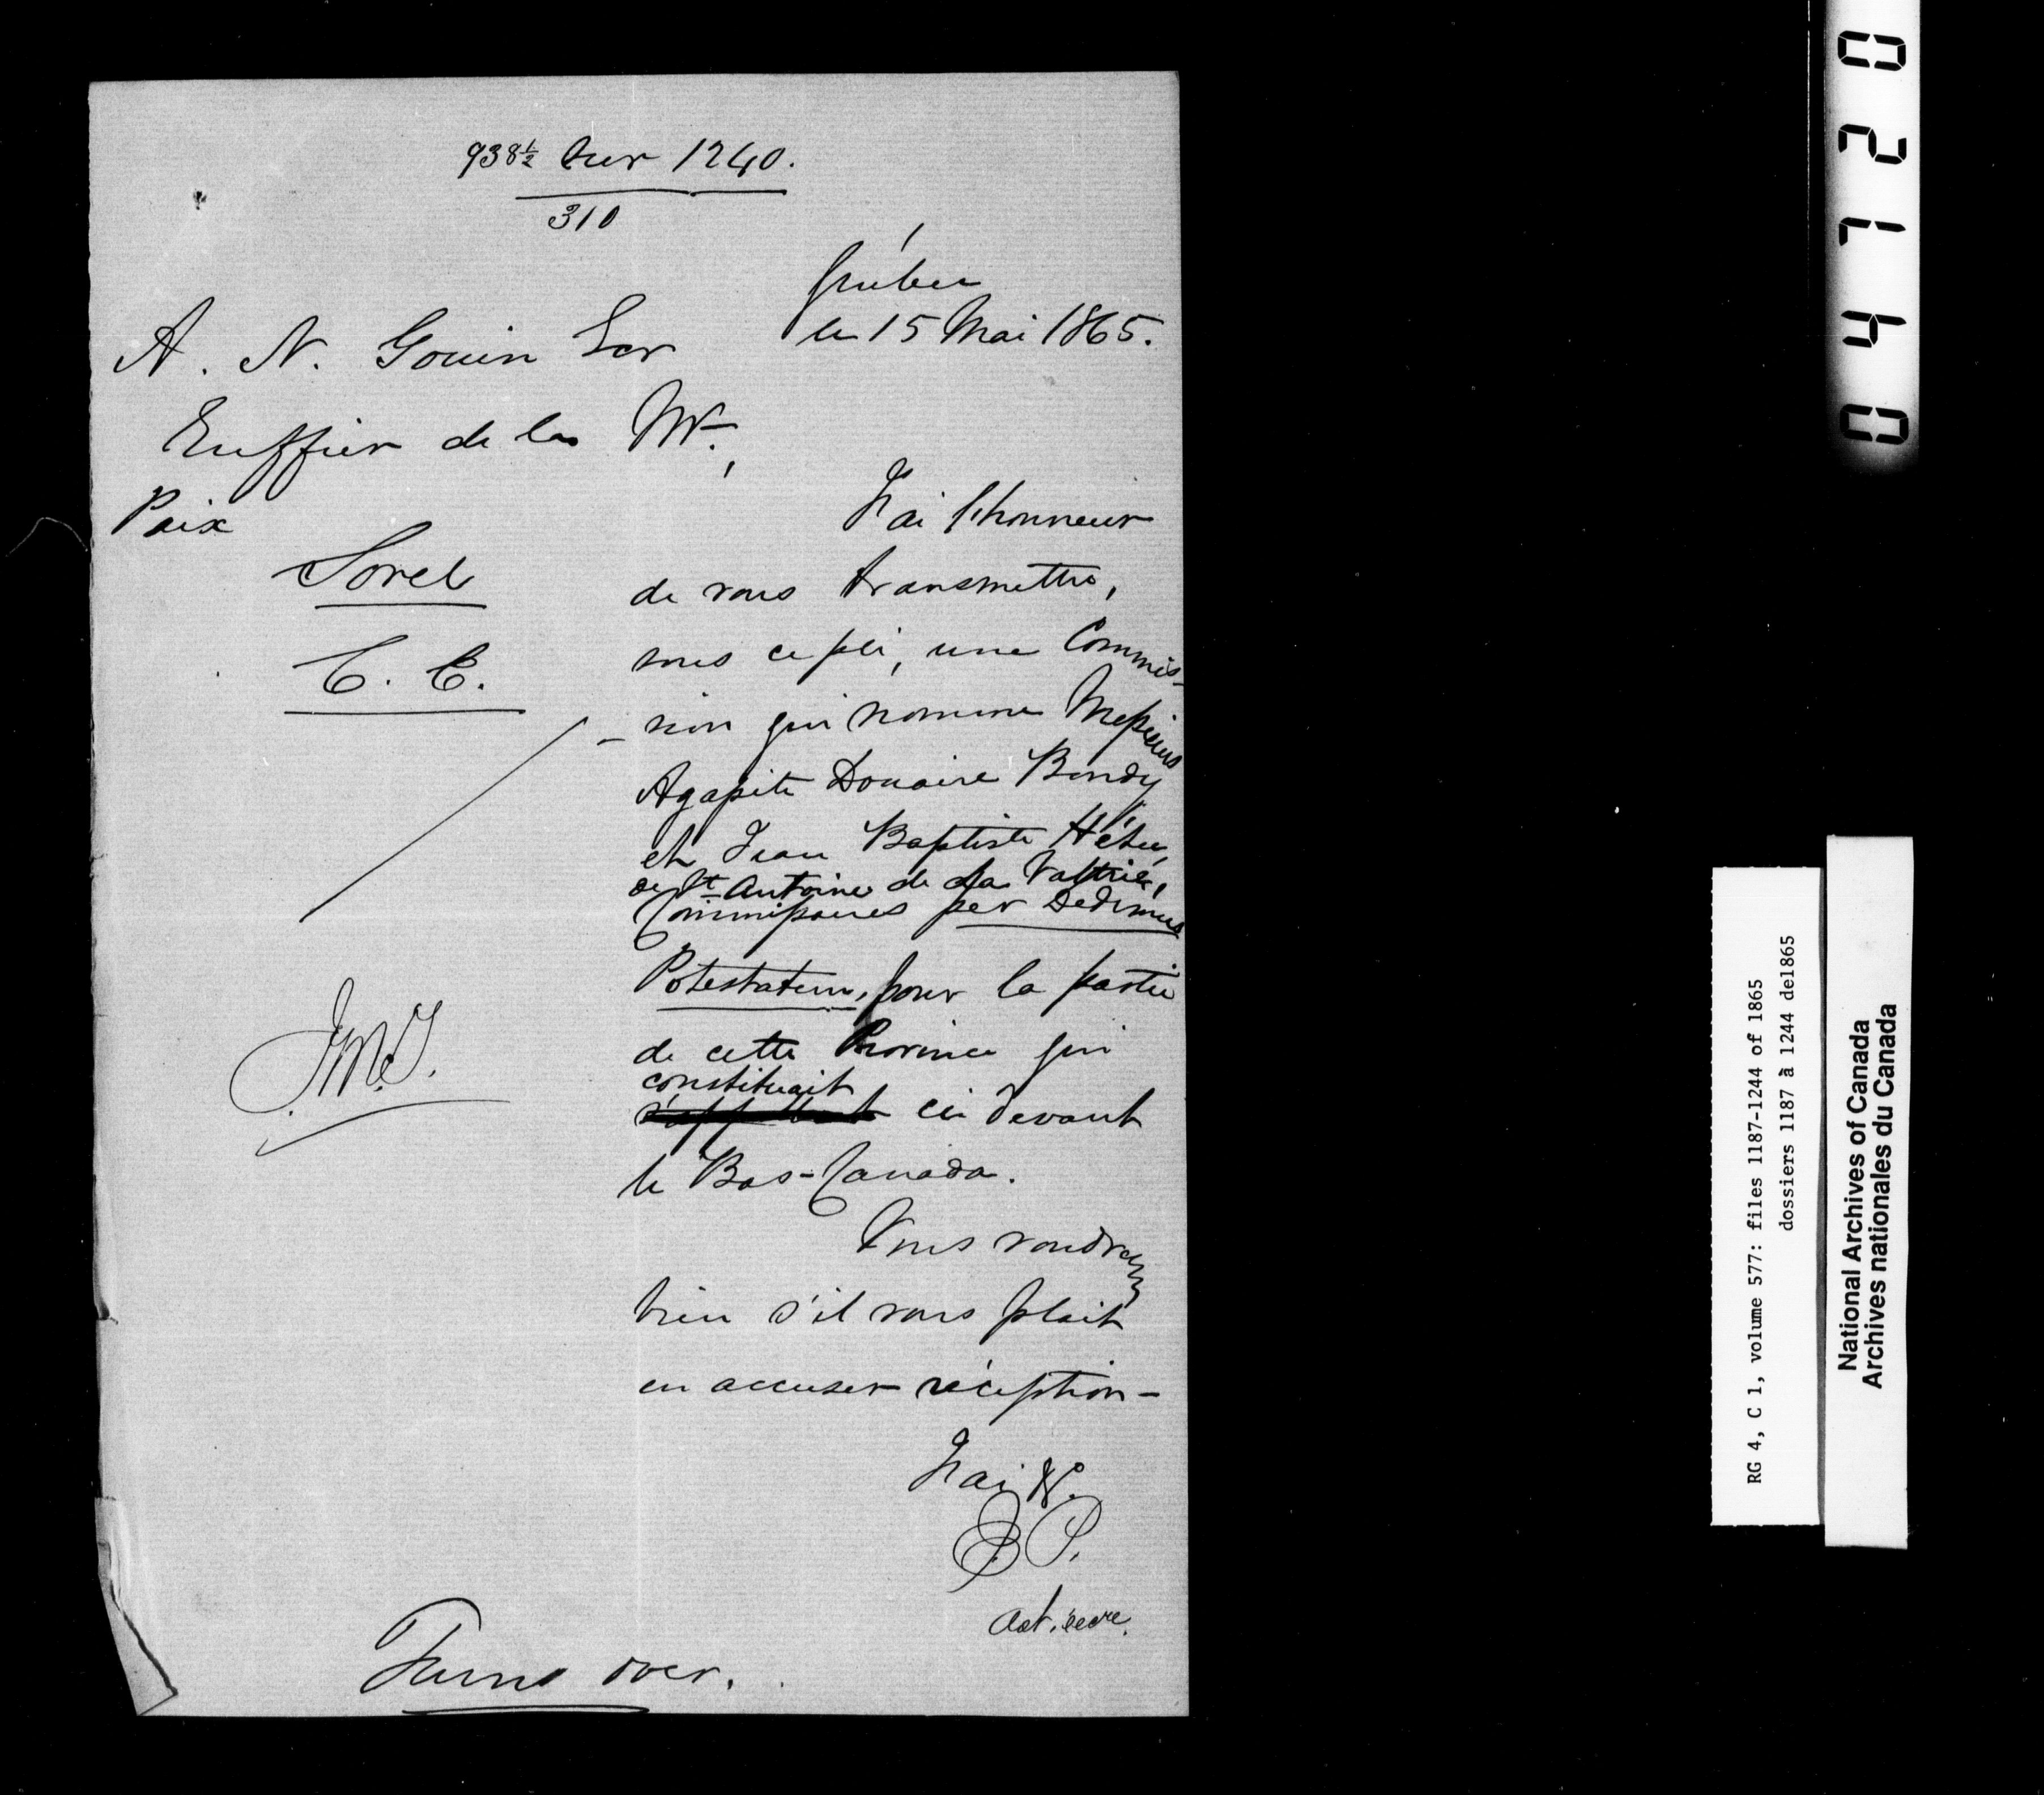 938½ sur 1240.
310
Québec
le 15 Mai 1865.
A. N. Gouin Ecr
Greffier de la
Paix
Sorel
C. C.
Mr.,
J'ai l'honneur
de vous transmettre,
sous ce pli, une Commis-
-sion qui nomme Messieurs
Agapite Douaire Bondy
et Jean Baptiste Hétu,
de St Antoine de La Valtrie,
Commissaires per Dedimus
Potestatem, pour la partie
de cette Province qui
constituait
s'appelait ci devant
le Bas-Canada.
Vous voudrez
bien s'il vous plait
en accuser réception-
J'ai &c.
E. P.
Ast. secre.
Turn over.
04720
RG 4, C 1, volume 577: files 1187-1244 of 1865
dossiers 1187 à 1244 de1865
National Archives of Canada
Archives nationales du Canada